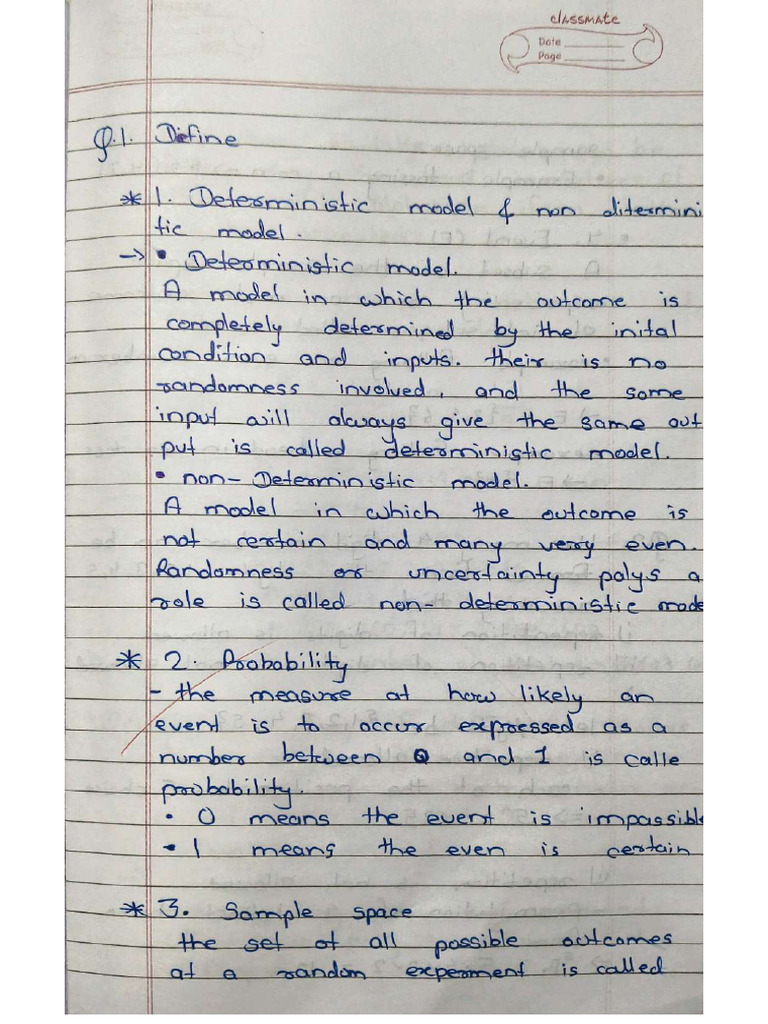 classmate
Date
Page
Q.1. Define
* 1. Deterministic model & non ditermini
tic model.
→ • Deterministic model.
A model in which the outcome is
completely determined by the inital
condition and inputs. their is no
randomness involved, and the some
input will always give the same out
put is called deterministic model.
• non- Deterministic model.
A model in which the outcome is
not certain and many very even.
Randomness or uncertainty polys a
role is called non- deterministic mode
* 2. Probability
- the measure at how likely an
event is to occur expressed as a
number between 0 and 1 is calle
probability.
• 0 means the event is impassible
• 1 means the even is certain
* 3. Sample space
the set of all possible outcomes
of a random experment is called